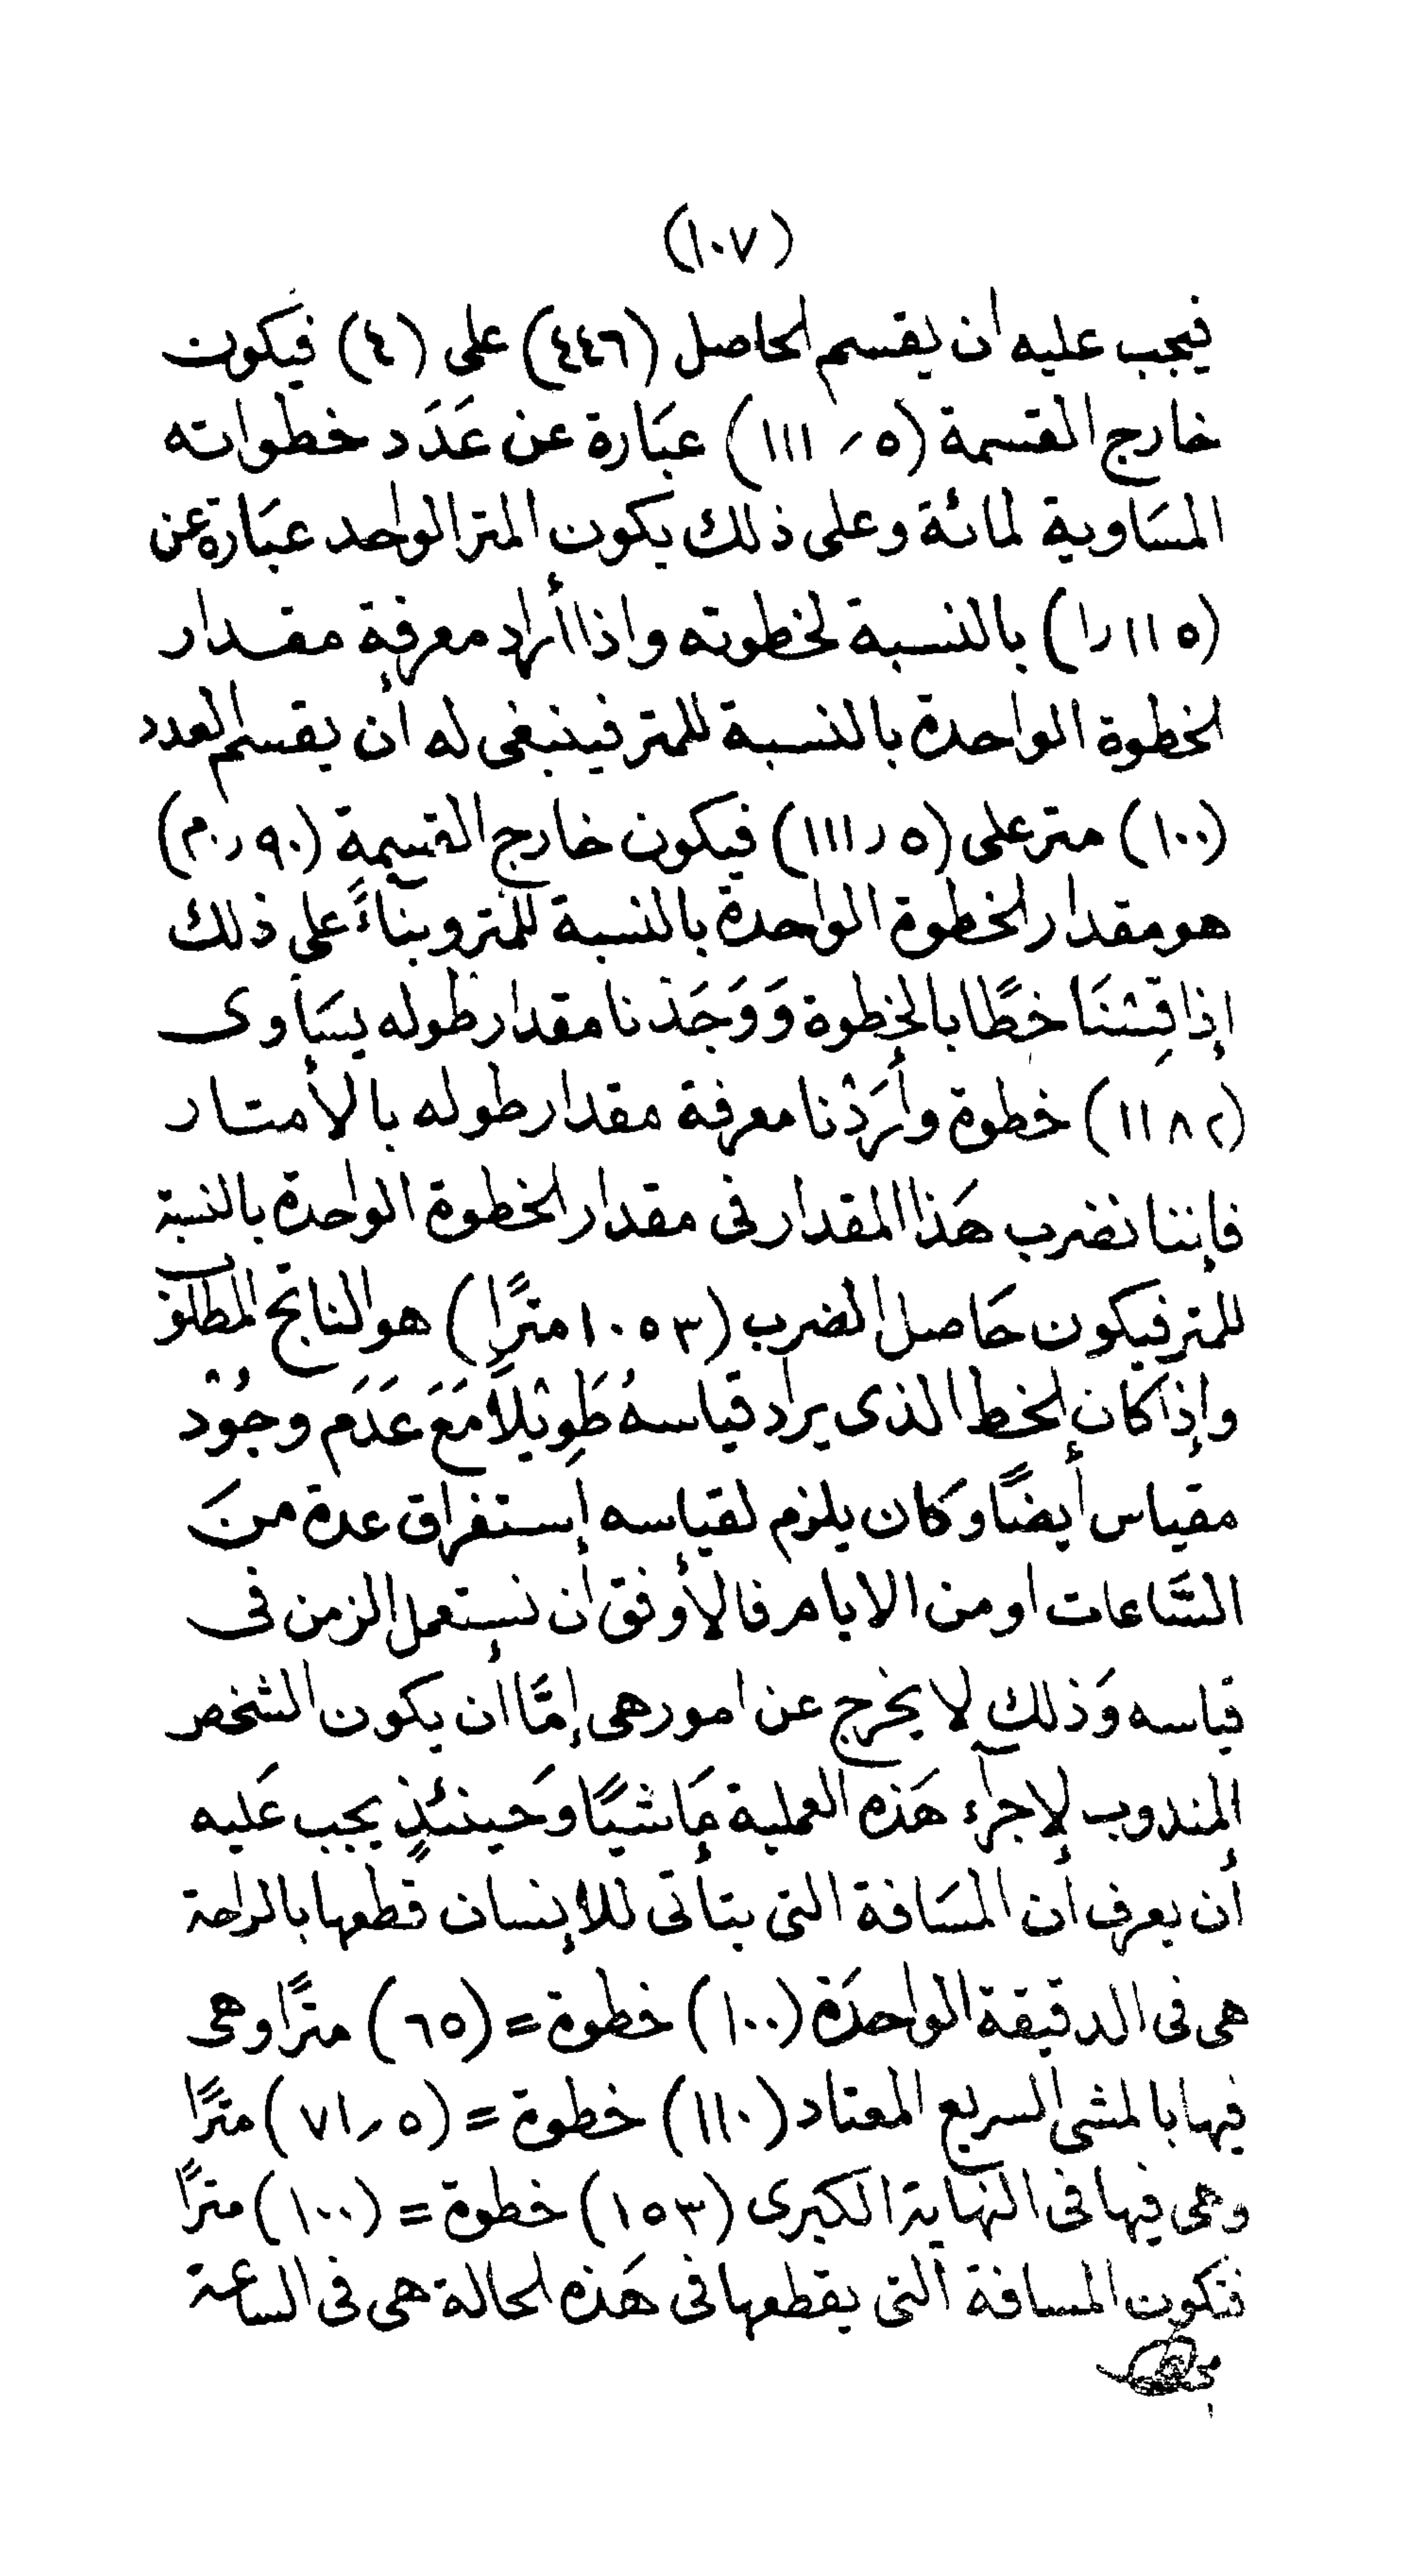 (١٠٧)
فيجب عليه ان يقسم الحاصل (٤٤٦) على (٤) فيكون
خارج القسمة (٥ ر ١١١) عبَارة عن عَدَد خطواته
المسَاوية لمائة وعلى ذلك يكون المتر الواحد عبَارة عن
(١١٥ر١) بالنسبة لخطوته واذا أراد معرفة مقدار
الخطوة الواحدة بالنسبة للمتر فينبغى له أن يقسم العدد
(١٠٠) متر على (٥ر١١١) فيكون خارج القسمة (٩٠ر٠م)
هو مقدار الخطوة الواحدة بالنسبة للمتر وبنآءً على ذلك
إذا قِسْنَا خطًا بالخطوة وَوَجَدْنا مقدار طوله يسَاوى
(١١٨٢) خطوة وأرَدْنا معرفة مقدار طوله بالأمتار
فإننا نضرب هَذا المقدار فى مقدار الخطوة الواحدة بالنسبة
للمتر فيكون حَاصل الضرب (١٠٥٣ مترًا) هو الناتج المطلوب
وإذا كان الخط الذى يراد قياسهُ طَوِيْلاً مَعَ عَدَم وجُوْد
مقياس أيضًا وكان يلزم لقياسه إستغراق عدة منَ
السَّاعات او من الايام فالأوفق أن نستعمل الزمن فى
قياسه وَذلك لا يخرج عن امور هى إمَّا أن يكون الشخص
المندوب لإجرآء هَذه العملية مَاشيًا وَحينئذٍ يجب عَليه
أن يعرف أن المسَافة التى يتأتى للإنسان قطعها بالراحة
هى فى الدقيقة الواحدَة (١٠٠) خطوة = (٦٥) مترًا وهى
فيها بالمشى السريع المعتاد (١١٠) خطوة = (٥ر٧١) مترًا
وهى فيها فى النهاية الكبرى (١٥٣) خطوة = (١٠٠) مترًا
فتكون المسافة التى يقطعها فى هَذه الحالة هى فى الساعة